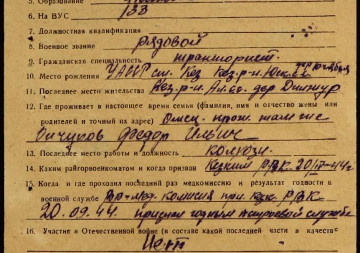 5. Образование
6. На ВУС 133
7. Должностная квалификация
8. Военное звание рядовой
9. Гражданская специальность тракторист.
10. Место рождения УАССР ст. Кез Кез. р-н
11. Последнее место жительства Кез. р-н дер
12. Где проживает в настоящее время семья (фамилия, имя и отчество жены или
родителей и точный их адрес) Отец, прож. там же
Бичуков Федор Ильич
13. Последнее место работы и должность колхоз.
14. Каким райгорвоенкоматом и когда призван Кезким РВК 20/IX-44г
15. Когда и где проходил последний раз медкомиссию и результат годности к
военной службе комиссия при Кез. РВК
20.09.44 признан годным к строевой службе
16. Участие в Отечественной войне (в составе какой последней части в качестве
Нет